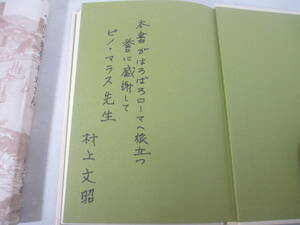 本書がはろばろローマへ旅立つ
誉に感謝して
ピノ・マラス先生
村上文昭